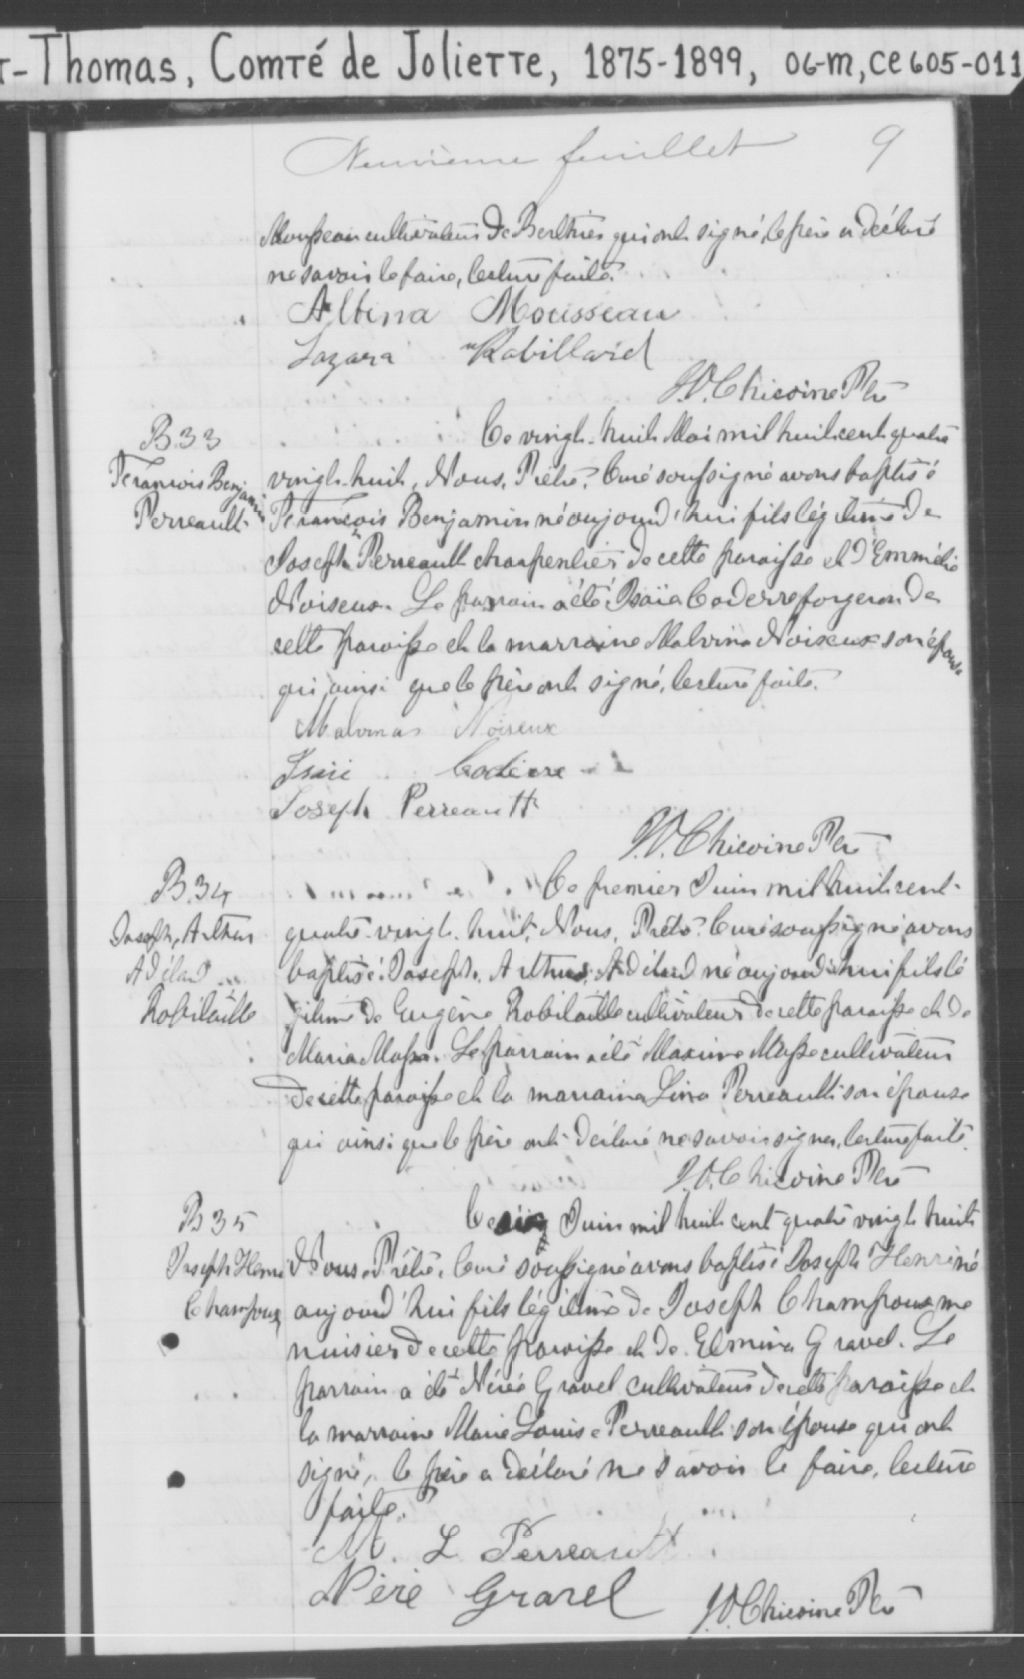 T-Thomas, Comté de Joliette, 1875-1899, 06-M, CE605-011
Neuvième feuillet 9
Mousseau cultivateur de Berthier qui ont signé, le père a déclaré
ne savoir le faire, lecture faite.
Albina Mousseau
Lazare Robillard
Chicoine Ptre
B.33
François Benjamin
Perreault
Ce vingt-huit Mai mil huit cent quatre
vingt-huit, Nous, Prêtre, Curé soussigné avons baptisé
François Benjamin né aujourd'hui fils légitime de
Joseph Perreault charpentier de cette paroisse et d'Emmélie
Noiseux. Le parrain a été Isaïe Coderre forgeron de
cette paroisse et la marraine Malvina Noiseux son épouse
qui ainsi que le père ont signé, lecture faite.
Malvinas Noiseux
Isaïe Codere
Joseph Perreault
Chicoine Ptre
B.34
Joseph, Arthur
Adélard
Robitaille
Ce premier Juin mil huit cent-
quatre-vingt-huit, Nous, Prêtre, Curé soussigné avons
baptisé Joseph, Arthur, Adélard né aujourd'hui fils lé
gitime de Eugène Robitaille cultivateur de cette paroisse et de
Maria Masse. Le parrain a été Maxime Masse cultivateur
de cette paroisse et la marraine Lina Perreault son épouse
qui ainsi que le père ont déclaré ne savoir signer, lecture faite.
Chicoine Ptre
B35
Joseph Henri
Champoux
Ce six Juin mil huit cent quatre vingt huit
Nous, Prêtre, Curé soussigné avons baptisé Joseph Henri né
aujourd'hui fils légitime de Joseph Champoux me
nuisier de cette paroisse et de Elmina Gravel. Le
parrain a été Nérée Gravel cultivateur de cette paroisse et
la marraine Marie Louise Perreault son épouse qui ont
signé, le père a déclaré ne savoir le faire, lecture
faite.
M. L Perreault
Néré Gravel
Chicoine Ptre